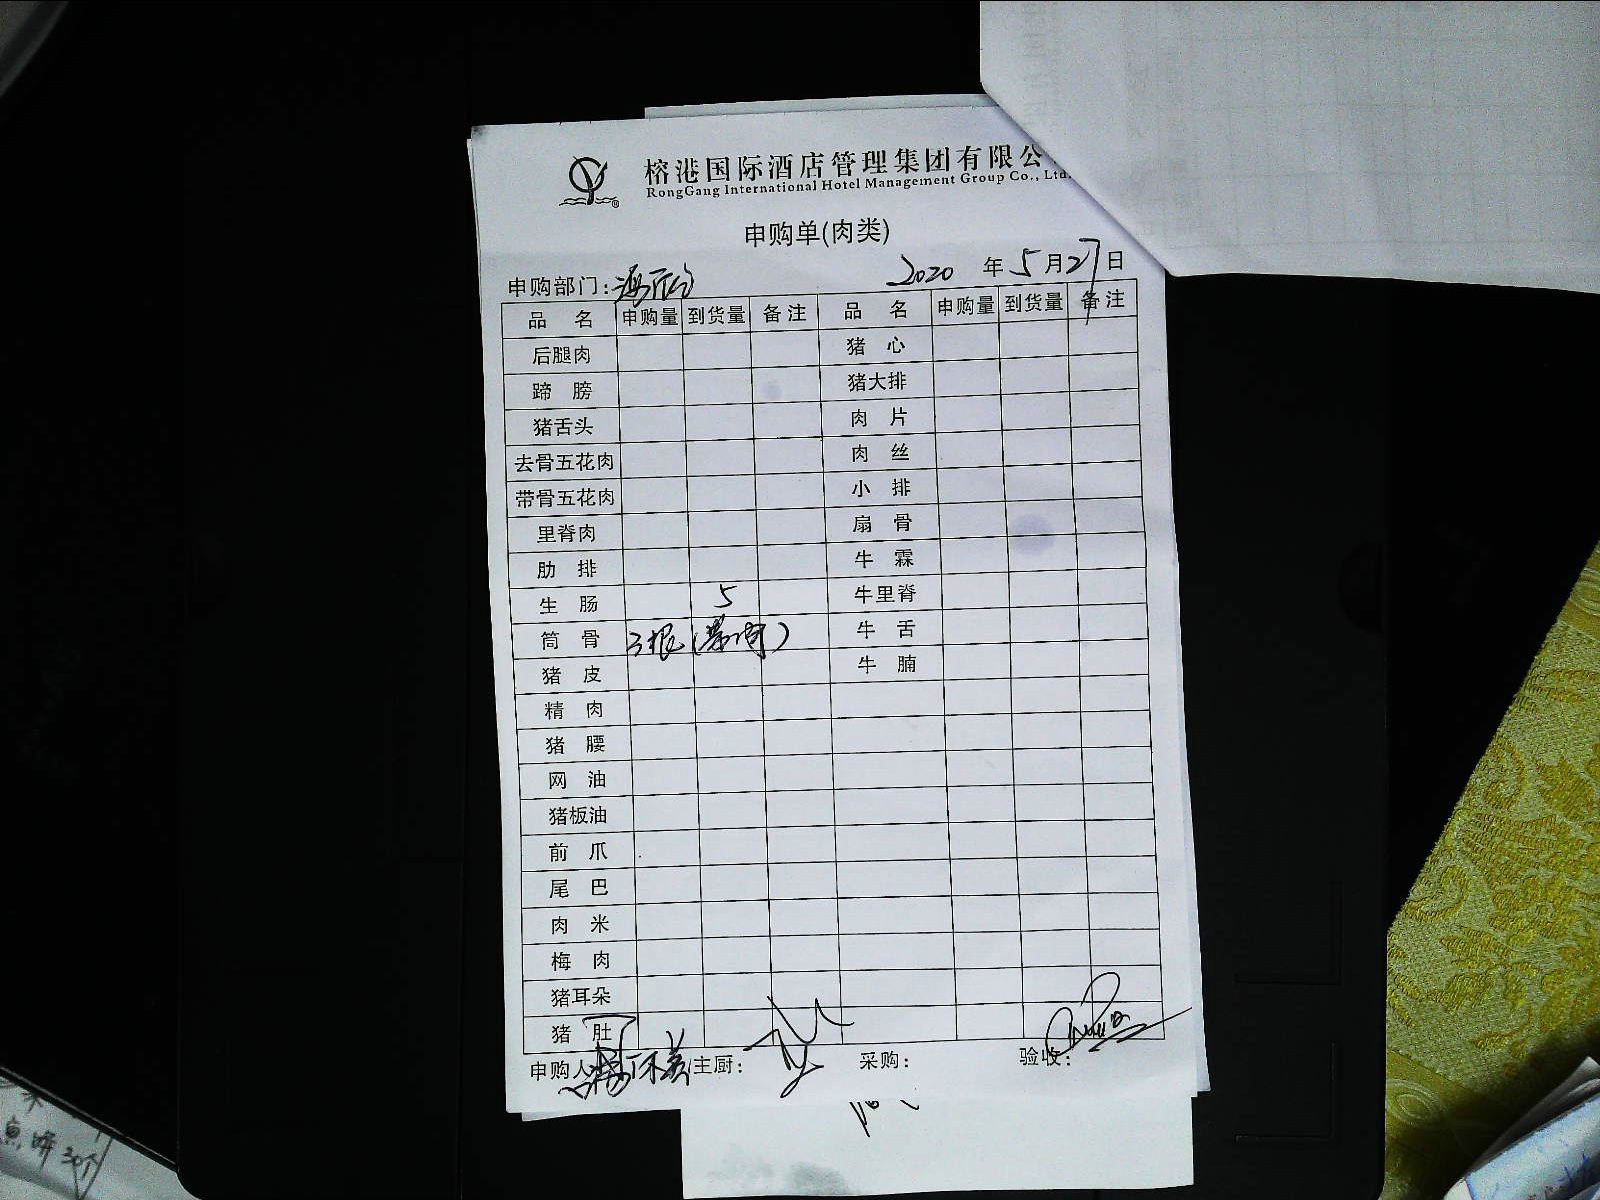 榕港国际酒店管理集团有限公
RongGang International Hotel Management Group Co., Ltd.
申购单(肉类)
申购部门: 2020 年 5 月 27 日
品 名 申购量 到货量 备注 品 名 申购量 到货量 备注
后腿肉 猪 心
蹄 膀 猪大排
猪舌头 肉 片
去骨五花肉 肉 丝
带骨五花肉 小 排
里脊肉 扇 骨
肋 排 牛 霖
生 肠 5 牛里脊
筒 骨 3根(带肉) 牛 舌
猪 皮 牛 腩
精 肉
猪 腰
网 油
猪板油
前 爪
尾 巴
肉 米
梅 肉
猪耳朵
猪 肚
申购人 主厨: 采购: 验收:
饼 30个